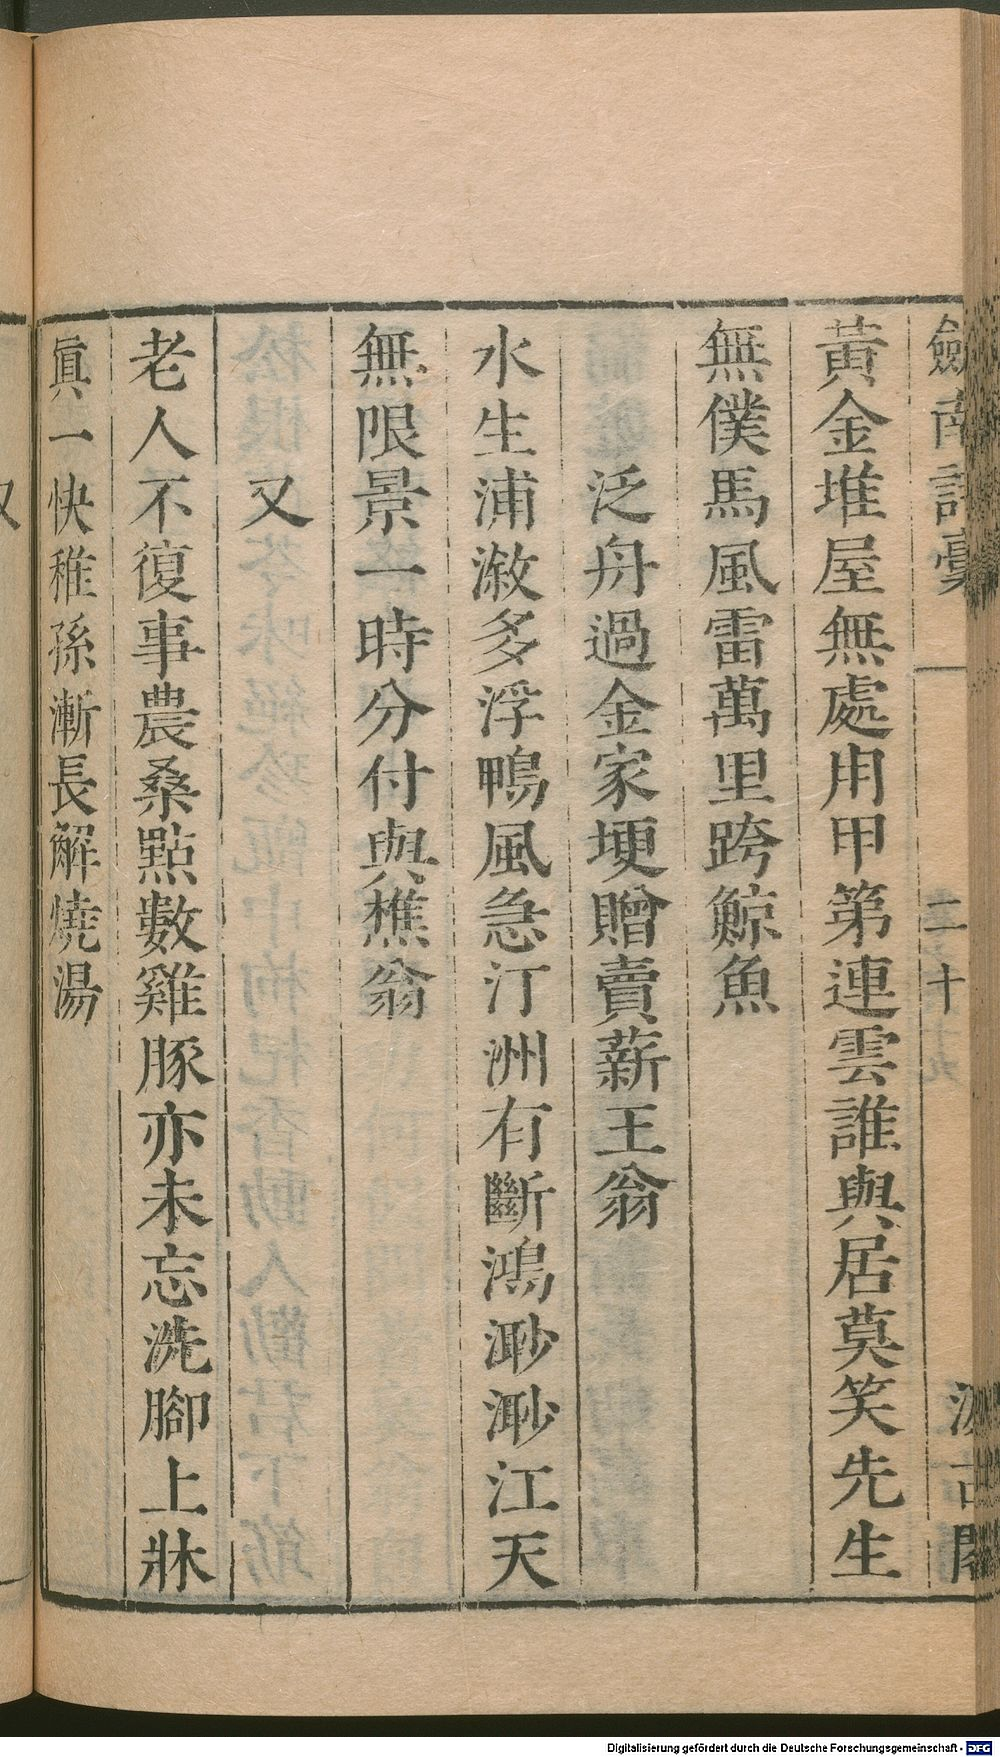 劍南詩稾
二
十
汲古閣
黃金堆屋無處用甲第連雲誰與居莫笑先生
無僕馬風雷萬里跨鯨魚
泛舟過金家埂贈賣薪王翁
水生浦漵多浮鴨風急汀洲有斷鴻渺渺江天
無限景一時分付與樵翁
又
老人不復事農桑點數雞豚亦未忘洗腳上牀
眞一快稚孫漸長解燒湯
又
Digitalisierung gefördert durch die Deutsche Forschungsgemeinschaft - DFG